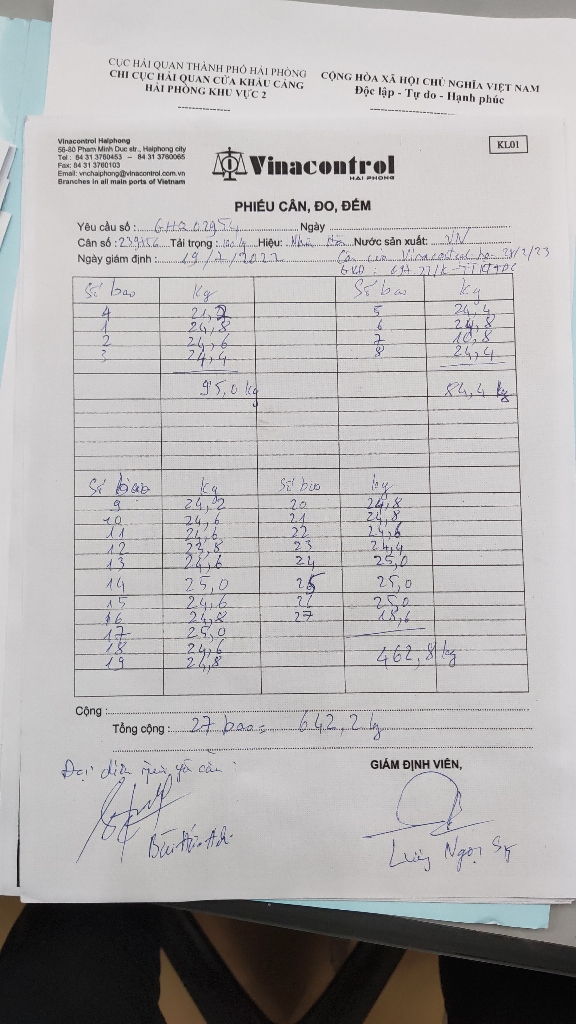 CỤC HẢI QUAN THÀNH PHỐ HẢI PHÒNG
CHI CỤC HẢI QUAN CỬA KHẨU CẢNG
HẢI PHÒNG KHU VỰC 2
CỘNG HÒA XÃ HỘI CHỦ NGHĨA VIỆT NAM
Độc lập - Tự do - Hạnh phúc
Vinacontrol Haiphong
56-80 Pham Minh Duc str., Haiphong city
Tel : 84 31 3760453 – 84 31 3760065
Fax: 84 31 3760103
Email: vnchaiphong@vinacontrol.com.vn
Branches in all main ports of Vietnam
Vinacontrol
HAI PHONG
KL01
PHIẾU CÂN, ĐO, ĐẾM
Yêu cầu số : GHQ 02954 Ngày
Cân số : 239756 Tải trọng : Hiệu: Nhơn Hòa Nước sản xuất: VN
Ngày giám định : 19/7/2022 Cân của Vinacontrol 28/2/23
Số bao Kg Số bao Kg
4 21,2 5 24,4
1 24,8 6 24,8
2 24,6 7 10,8
3 24,4 8 24,4
95,0 kg 84,4 kg
Số bao Kg Số bao Kg
9 24,2 20 24,8
10 24,6 21 24,8
11 24,6 22 24,6
12 23,8 23 24,4
13 24,6 24 25,0
14 25,0 25 25,0
15 24,6 26 25,0
16 24,8 27 18,6
17 25,0
18 24,6 462,8 kg
19 24,8
Cộng :
Tổng cộng : 27 bao = 642,2 kg
Đại diện yêu cầu
GIÁM ĐỊNH VIÊN,
Ngọc